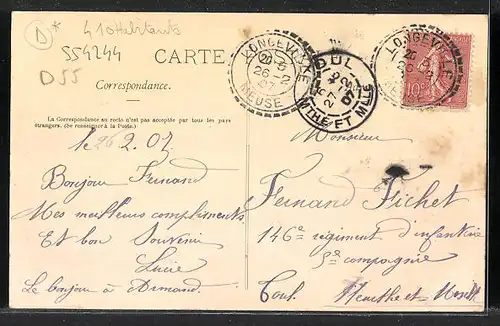 D*
410 Habitants
554244
D55
CARTE
Correspondance.
La Correspondance au recto n'est pas acceptée par tous les pays
étrangers. (Se renseigner à la Poste.)
LONGEVILLE
26-2
07
MEUSE
TOUL
27-2
07
MTHE-ET-MLLE
LONGEVILLE
26-2
10c
le 26 2. 07.
Bonjour Fernand
Mes meilleurs compliments
Et bon Souvenir
Lucie
Le bonjour à Armand
Monsieur
Fernand Fichet
146e régiment d'infanterie
5e compagnie
Toul. Meurthe et Moselle